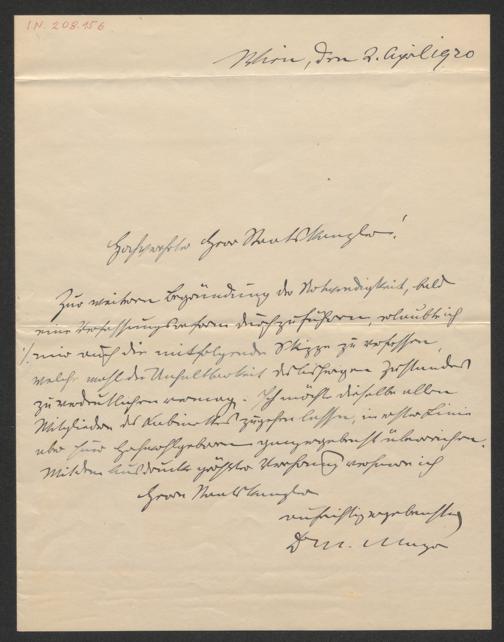 I.N. 208.156
Wien, den 2. April 1920
Hochverehrter Herr Staatskanzler!
Zur weitern Begründung der Notwendigkeit, bald
eine Verfassungsreform durchzuführen, erlaubte ich
./. mir auch die mitfolgende Skizze zu verfassen,
welche wohl die Unhaltbarkeit des bisherigen Zustandes
zu verdeutlichen vermag. Ich möchte dieselbe allen
Mitgliedern des Kabinettes zugehen lassen, in erster Linie
aber Euer Hochwohlgeboren ganz ergebenst überreichen.
Mit dem Ausdrucke größter Verehrung verharre ich
Herrn Staatskanzler
aufrichtig ergebenster
Dr M. Mayr